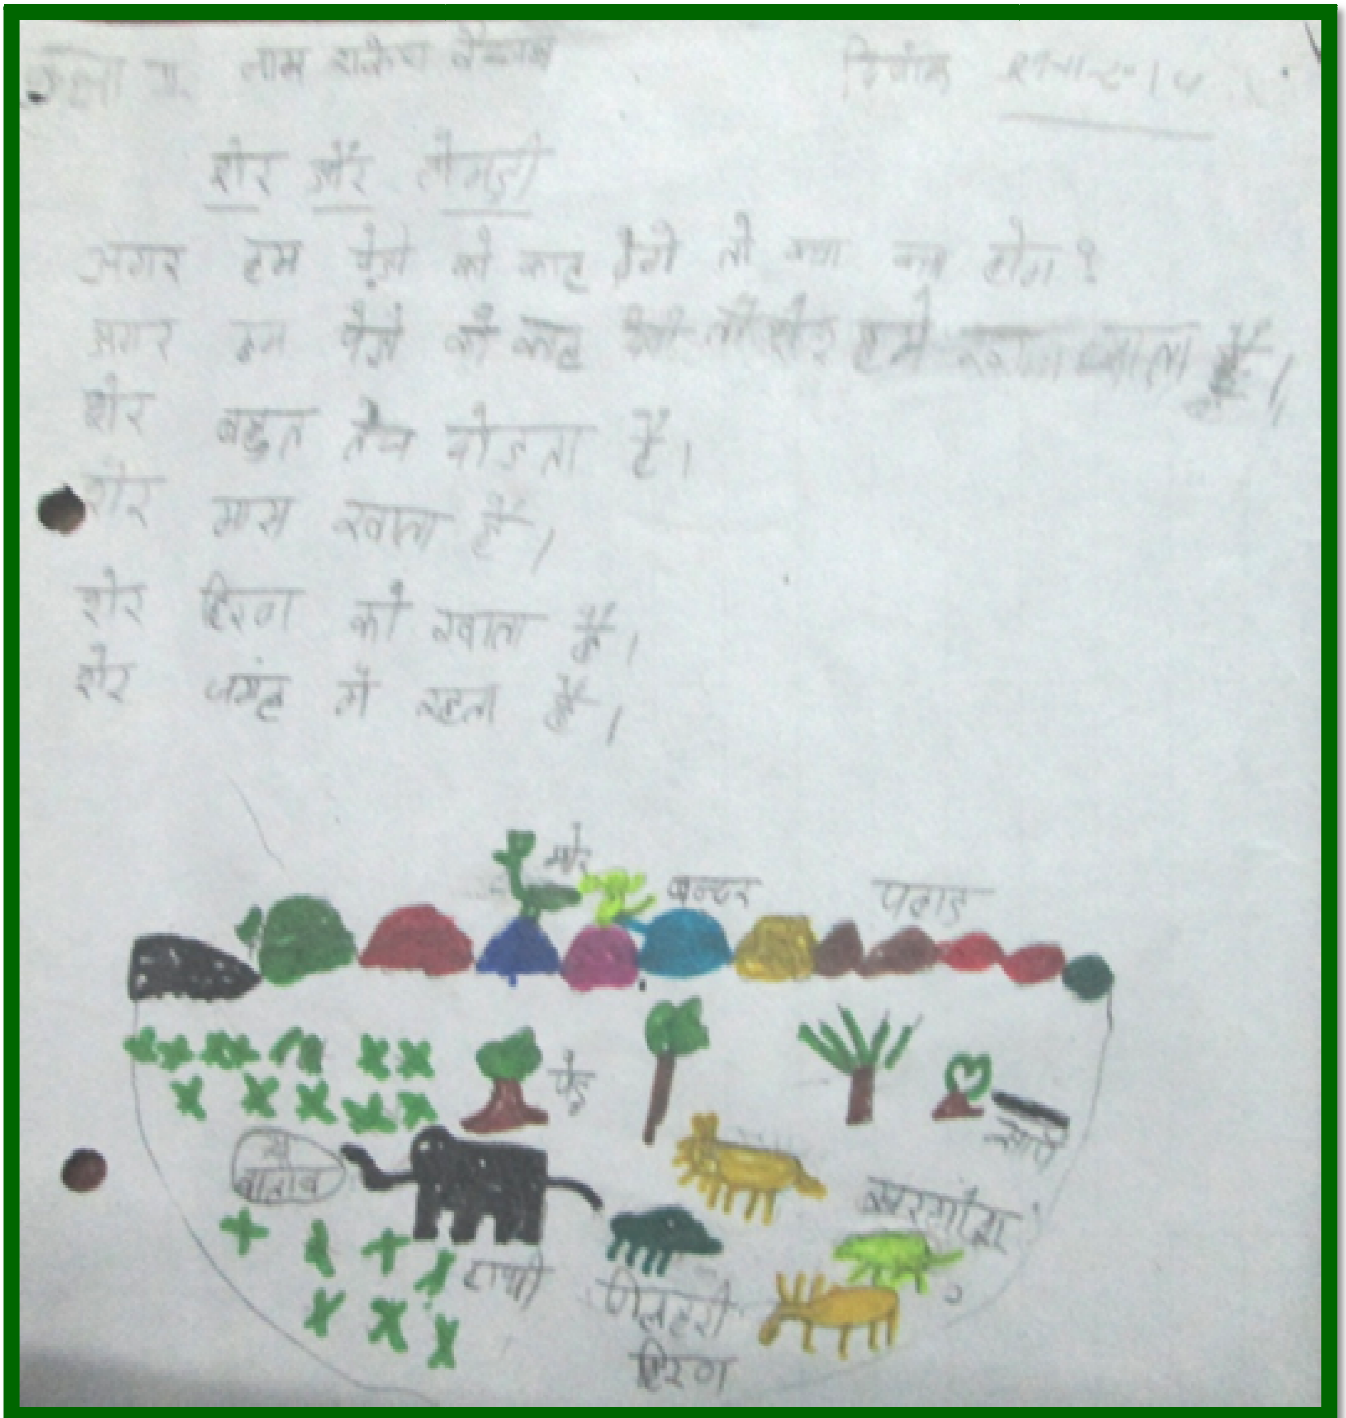 कक्षा नाम राकेश वैष्णव दिनांक
शेर और लोमड़ी
अगर हम पेड़ो को काट देगे तो क्या क्या होगा?
अगर हम पेड़ो को काट देगे तो शेर हमे खा जाता है।
शेर बहुत तेज दोडता है।
शेर मास खाता है।
शेर हिरण को खाता है।
शेर जगंल में रहता है।
मोर
बन्दर
पहाड
पेड़
सांप
तालाब
खरगोश
हाथी
गिलहरी
हिरण